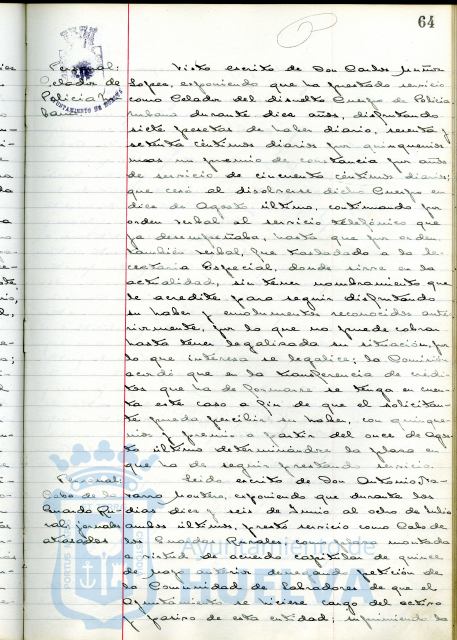 64
Personal:
Celador de
Policía
Visto escrito de Don Carlos Muñoz
Lopez, exponiendo que ha prestado servicio
como Celador del disuelto Cuerpo de Policia
urbana durante diez años, disfrutando
siete pesetas de haber diario, setenta y
setenta céntimos diarios por quinquenios
mas un premio de constancia por años
de servicio de cincuenta céntimos diarios;
que cesó al disolverse dicho Cuerpo en
diez de Agosto último, continuando por
orden verbal al servicio telefónico que
ya desempeñaba, hasta que por orden
también verbal, fue trasladado a la Se-
cretaria Especial, donde sirve en la
actualidad, sin tener nombramiento que
le acredite para seguir disfrutando
su haber y emolumentos reconocidos ante-
riormente, por lo que no puede cobrar
hasta tener legalizada su situación, por
lo que interesa se legalice; la Comisión
acordó que en la transferencia de crédi-
tos que ha de formarse se tenga en cuen-
ta este caso a fin de que el solicitan-
te pueda percibir su haber, con quinque-
nios y premio a partir del once de Agos-
to último determinándose la plaza en
que ha de seguir prestando servicio.
Personal:
Cabo de la
Guardia Ru-
ral; jornales
atrasados
Leido escrito de Don Antonio Na-
varro Montero, exponiendo que durante los
dias diez y seis de Junio al ocho de Julio
ambos últimos, prestó servicio como Cabo de
los Guardas Rurales con montada
a virtud de acuerdo capitular de quince
de Mayo anterior denegando petición de
la Comunidad de Labradores de que el
Ayuntamiento se hiciere cargo del activo
y pasivo de esta entidad; suprimiendo la
Ayuntamiento de
HUELVA